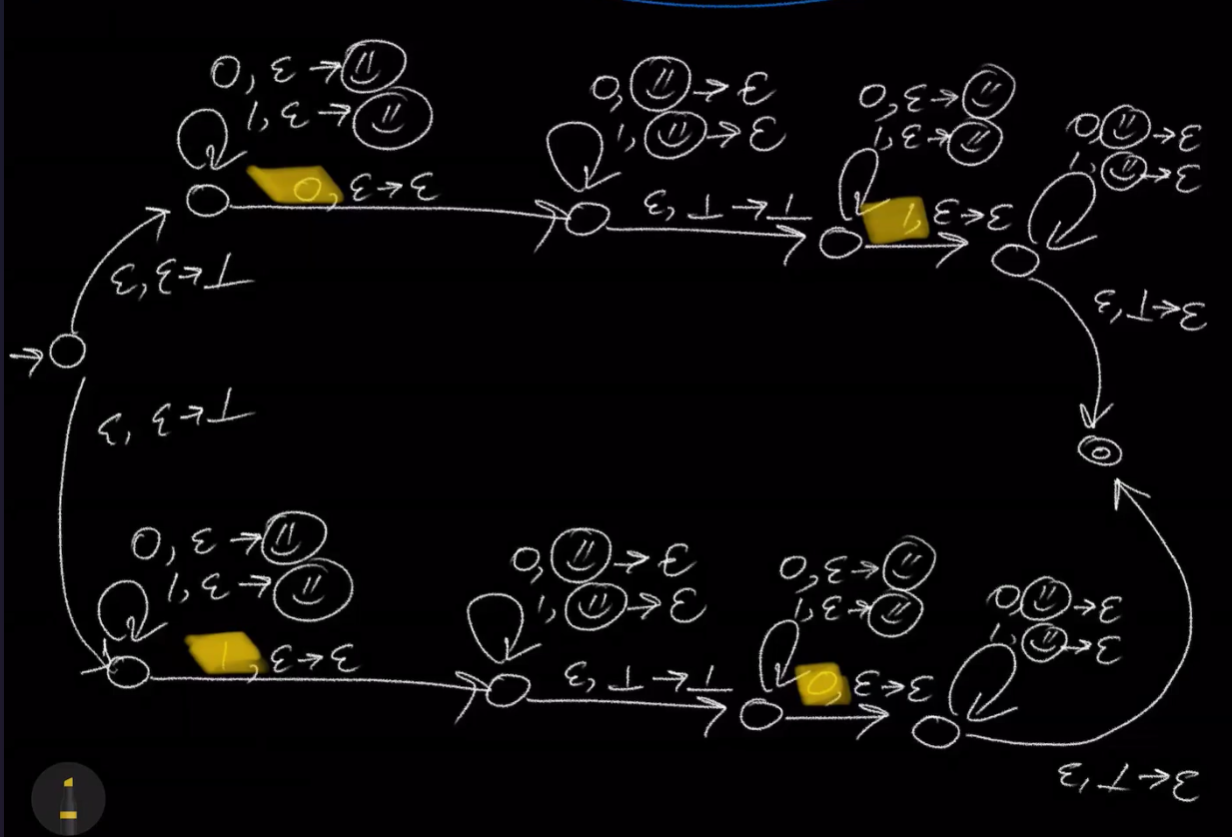 0, ε → ☺
1, ε → ☺
0, ε → ε
0, ☺ → ε
1, ☺ → ε
ε, ⊥ → ⊥
0, ε → ☺
1, ε → ☺
1, ε → ε
0, ☺ → ε
1, ☺ → ε
ε, ε → ⊥
ε, ⊥ → ε
ε, ε → ⊥
0, ε → ☺
1, ε → ☺
1, ε → ε
0, ☺ → ε
1, ☺ → ε
ε, ⊥ → ⊥
0, ε → ☺
1, ε → ☺
0, ε → ε
0, ☺ → ε
1, ☺ → ε
ε, ⊥ → ε